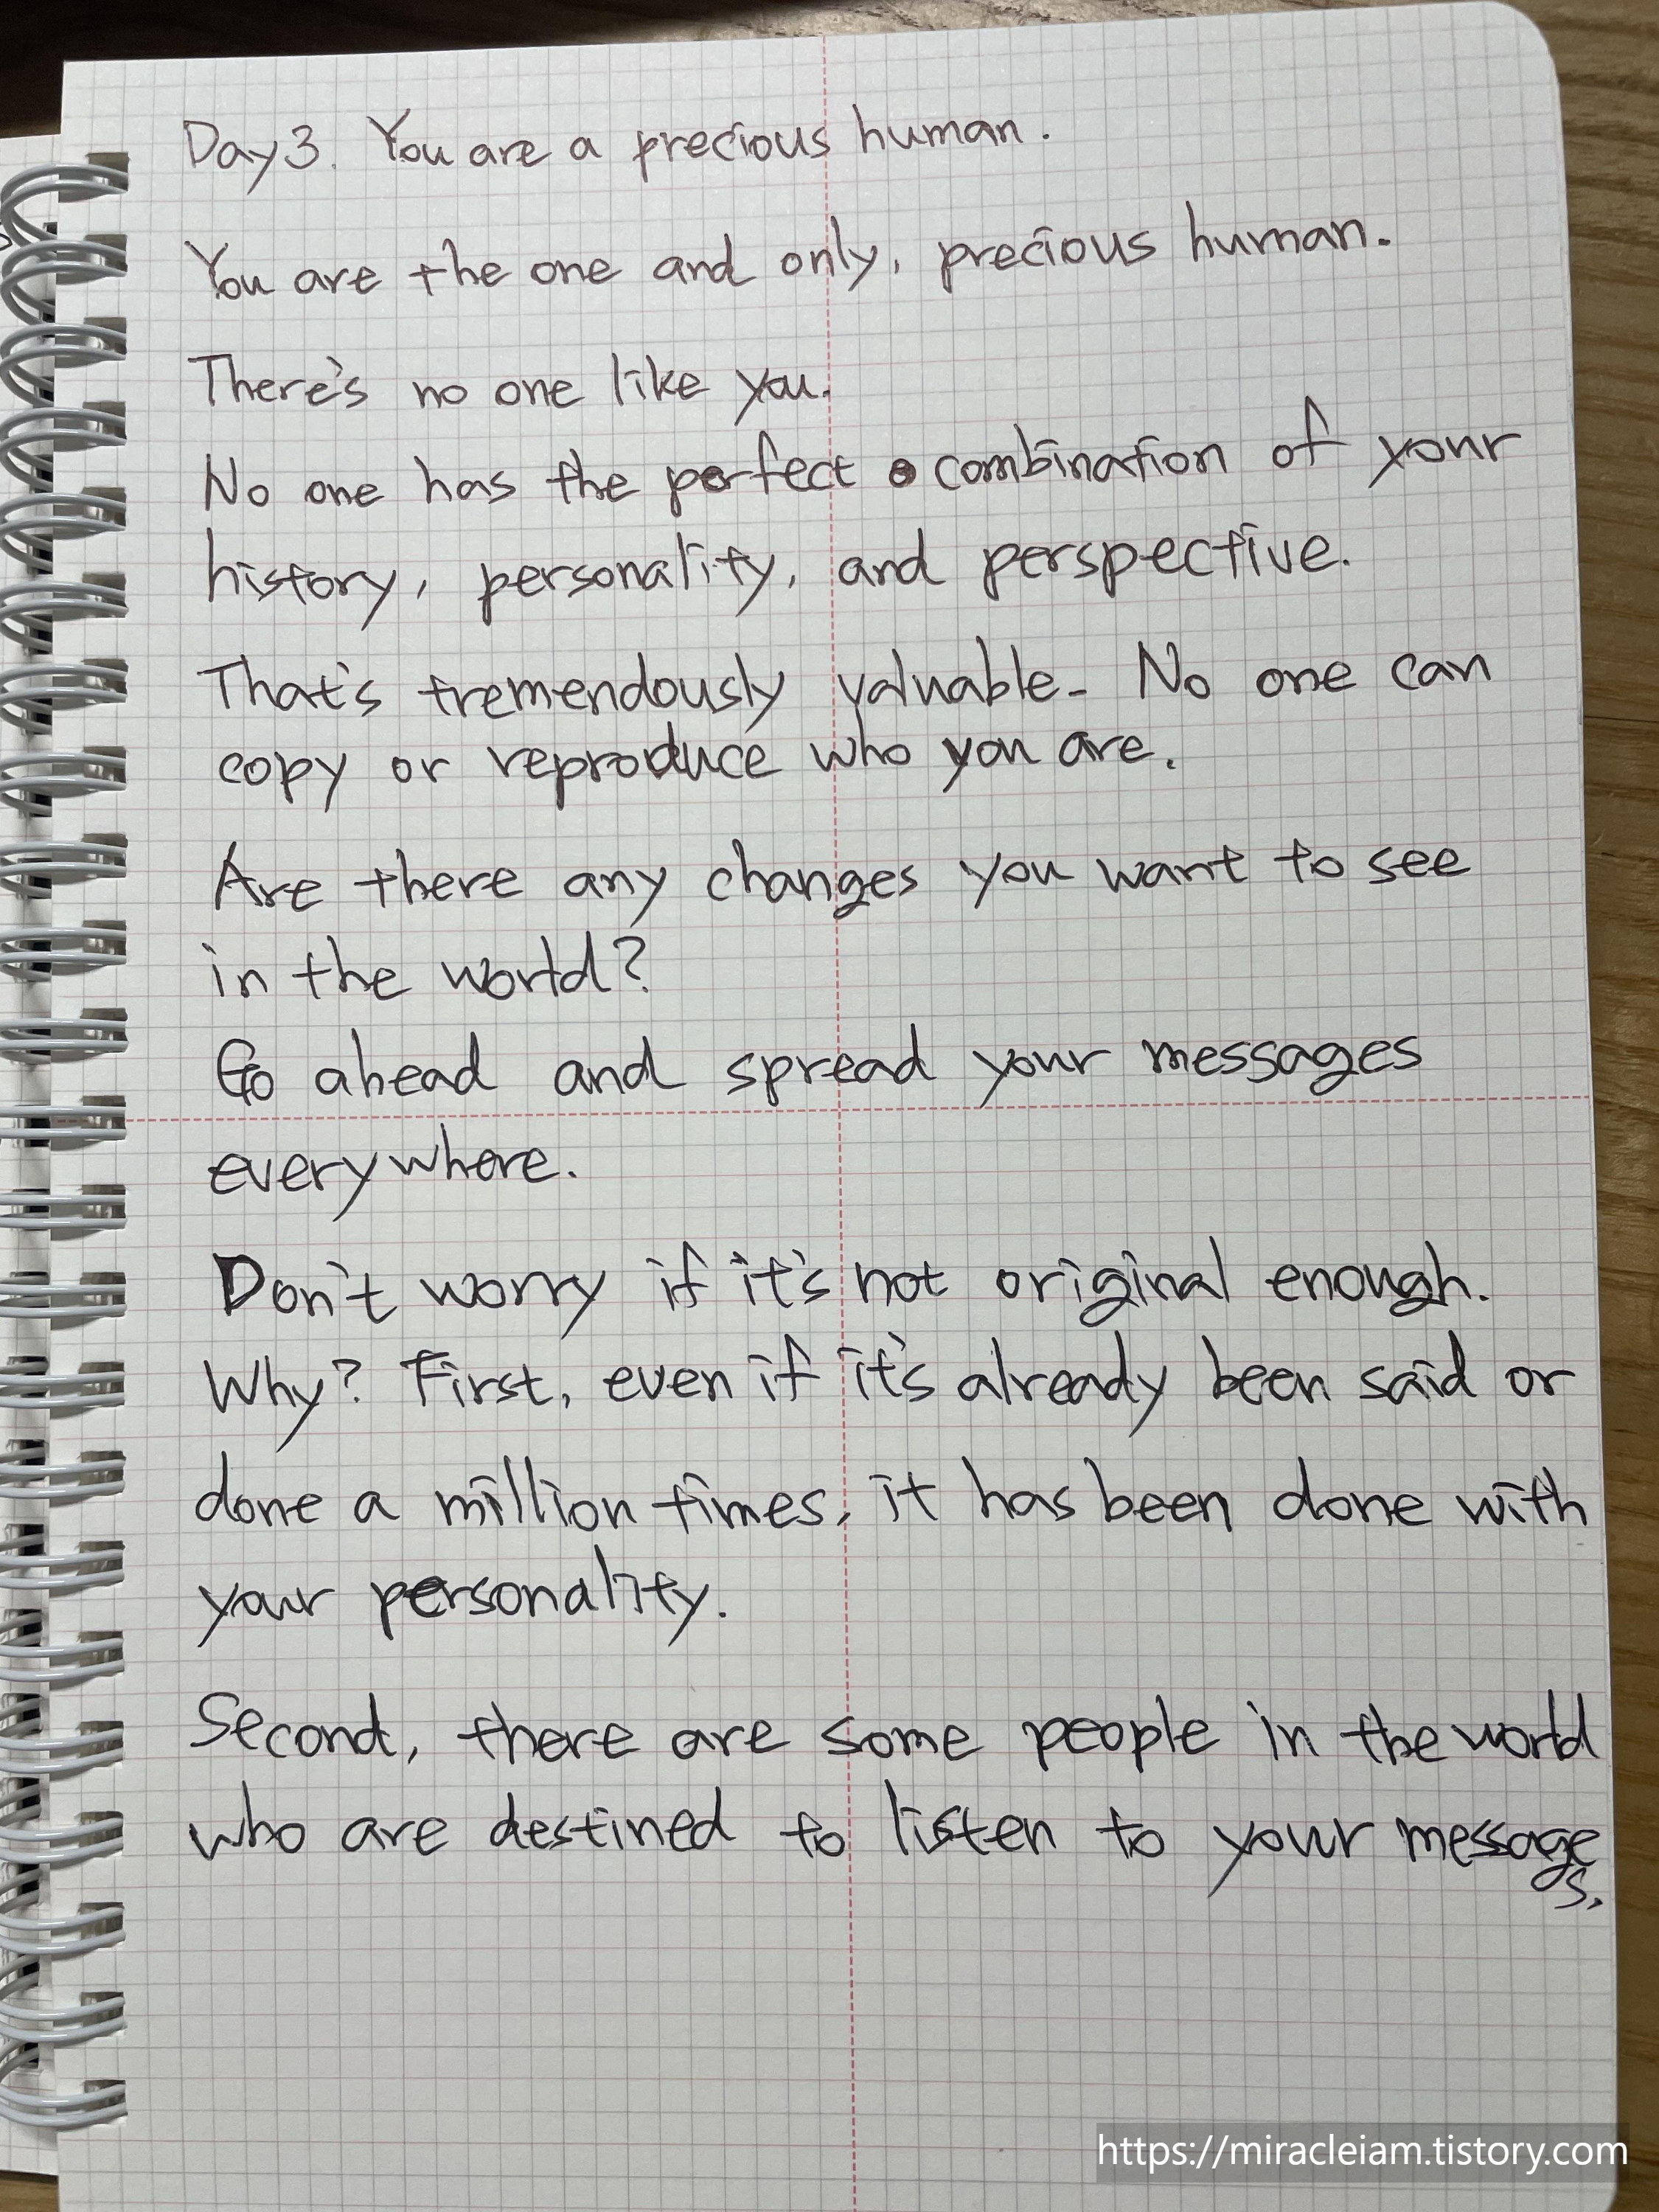 Day 3. You are a precious human.
You are the one and only, precious human.
There's no one like you.
No one has the perfect combination of your
history, personality, and perspective.
That's tremendously valuable. No one can
copy or reproduce who you are.
Are there any changes you want to see
in the world?
Go ahead and spread your messages
everywhere.
Don't worry if it's not original enough.
Why? First, even if it's already been said or
done a million times, it has been done with
your personality.
Second, there are some people in the world
who are destined to listen to your messages.
https://miracleiam.tistory.com